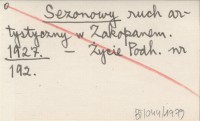 Sezonowy ruch ar-
tystyczny w Zakopanem.
1927. – Życie Podh. nr
192.